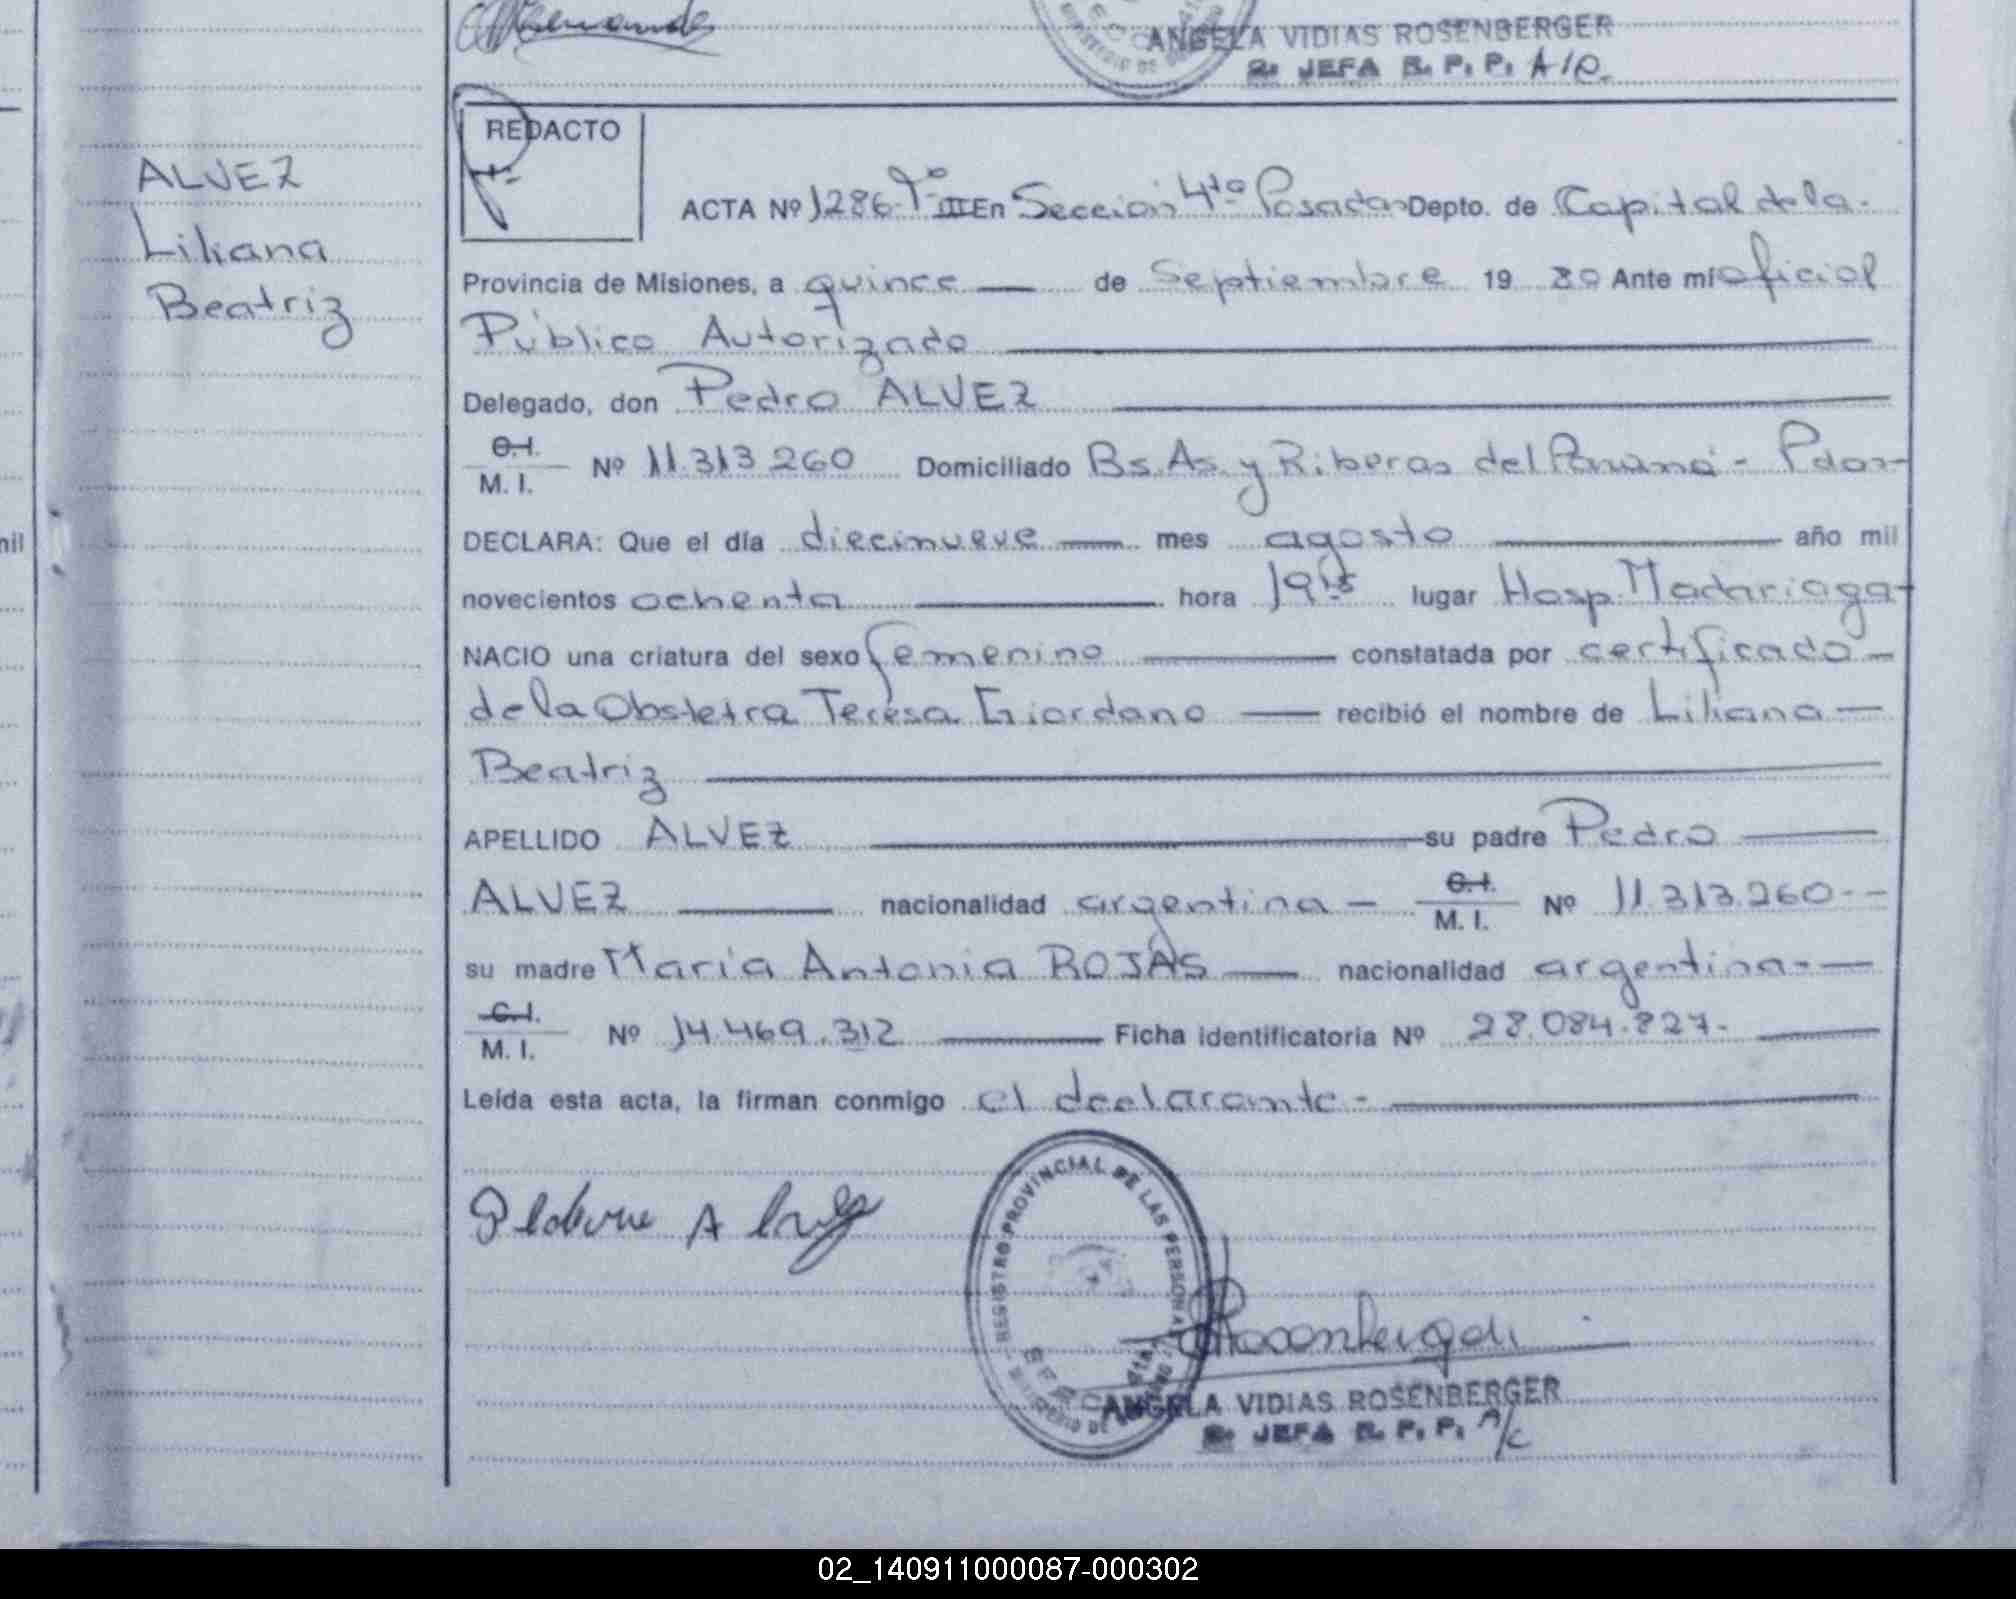 ANGELA VIDIAS ROSENBERGER
2ª JEFA R. P. P. A/C.
ALVEZ
Liliana
Beatriz
REDACTO
ACTA Nº 1286 Tº III En Sección 4ta Posadas Depto. de Capital de la
Provincia de Misiones, a quince de Septiembre 19 80 Ante mí oficial
Público Autorizado
Delegado, don Pedro ALVEZ
C.I.
M. I. Nº 11.313.260 Domiciliado Bs. As. y Riberas del Paraná - Pdas
DECLARA: Que el día diecinueve mes agosto año mil
novecientos ochenta hora 19 15 lugar Hosp. Madariaga
NACIO una criatura del sexo femenino constatada por certificado
de la Obstetra Teresa Giordano recibió el nombre de Liliana
Beatriz
APELLIDO ALVEZ su padre Pedro
ALVEZ nacionalidad argentina - C.I.
M. I. Nº 11.313.260 --
su madre María Antonia ROJAS nacionalidad argentina -
C.I.
M. I. Nº 14.469.312 Ficha identificatoria Nº 28.084.827.
Leída esta acta, la firman conmigo el declarante -
REGISTRO PROVINCIAL DE LAS PERSONAS
ANGELA VIDIAS ROSENBERGER
2ª JEFA R. P. P. A/C
nil
02_140911000087-000302